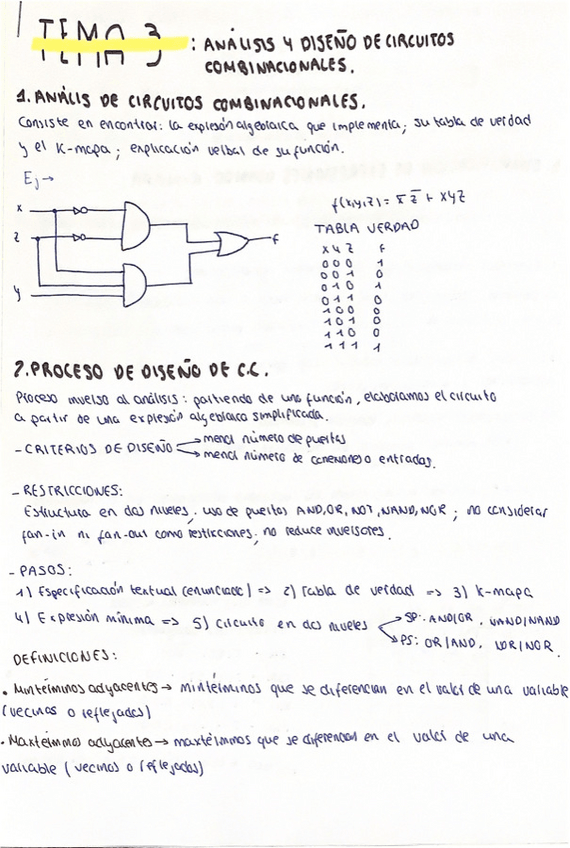 TEMA 3: ANÁLISIS Y DISEÑO DE CIRCUITOS
COMBINACIONALES.
1. ANÁLIS DE CIRCUITOS COMBINACIONALES.
Consiste en encontrar: la expresión algebraica que implementa; su tabla de verdad
y el K-mapa; explicación verbal de su función.
Ej →
f(x,y,z) = x̅ z̅ + xyz
TABLA VERDAD
x y z f
0 0 0 1
0 0 1 0
0 1 0 1
0 1 1 0
1 0 0 0
1 0 1 0
1 1 0 0
1 1 1 1
x
z
y
f
2. PROCESO DE DISEÑO DE C.C.
Proceso inverso al análisis: partiendo de una función, elaboramos el circuito
a partir de una expresión algebraica simplificada.
- CRITERIOS DE DISEÑO → menor número de puertas
→ menor número de conexiones o entradas.
- RESTRICCIONES:
Estructura en dos niveles; uso de puertas AND, OR, NOT, NAND, NOR; no considerar
fan-in ni fan-out como restricciones; no reduce inversores.
- PASOS:
1) Especificación textual (enunciado) => 2) Tabla de verdad => 3) K-mapa
4) Expresión mínima => 5) Circuito en dos niveles → SP: AND/OR, NAND/NAND
→ PS: OR/AND, NOR/NOR.
DEFINICIONES:
• Mintérminos adyacentes → mintérminos que se diferencian en el valor de una variable
(vecinos o reflejados)
• Maxtérminos adyacentes → maxtérminos que se diferencian en el valor de una
variable (vecinos o reflejados)